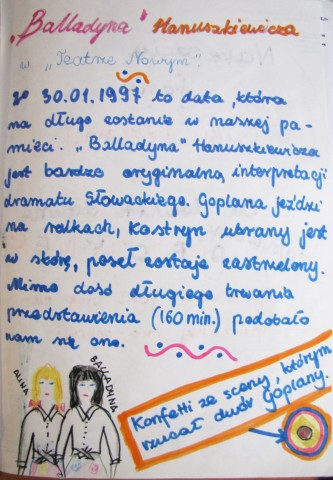 „Balladyna" Hanuszkiewicza
w „Teatrze Nowym"
30.01.1997 to data, która
na długo zostanie w naszej pa-
mięci. „Balladyna" Hanuszkiewicza
jest bardzo oryginalną interpretacją
dramatu Słowackiego. Goplana jeździ
na rolkach, Kostryn ubrany jest
w skórę, poseł zostaje zastrzelony.
Mimo dość długiego trwania
przedstawienia (160 min.) podobało
nam się ono.
ALINA
BALLADYNA
Konfetti ze sceny, którym
rzucał duch Goplany.